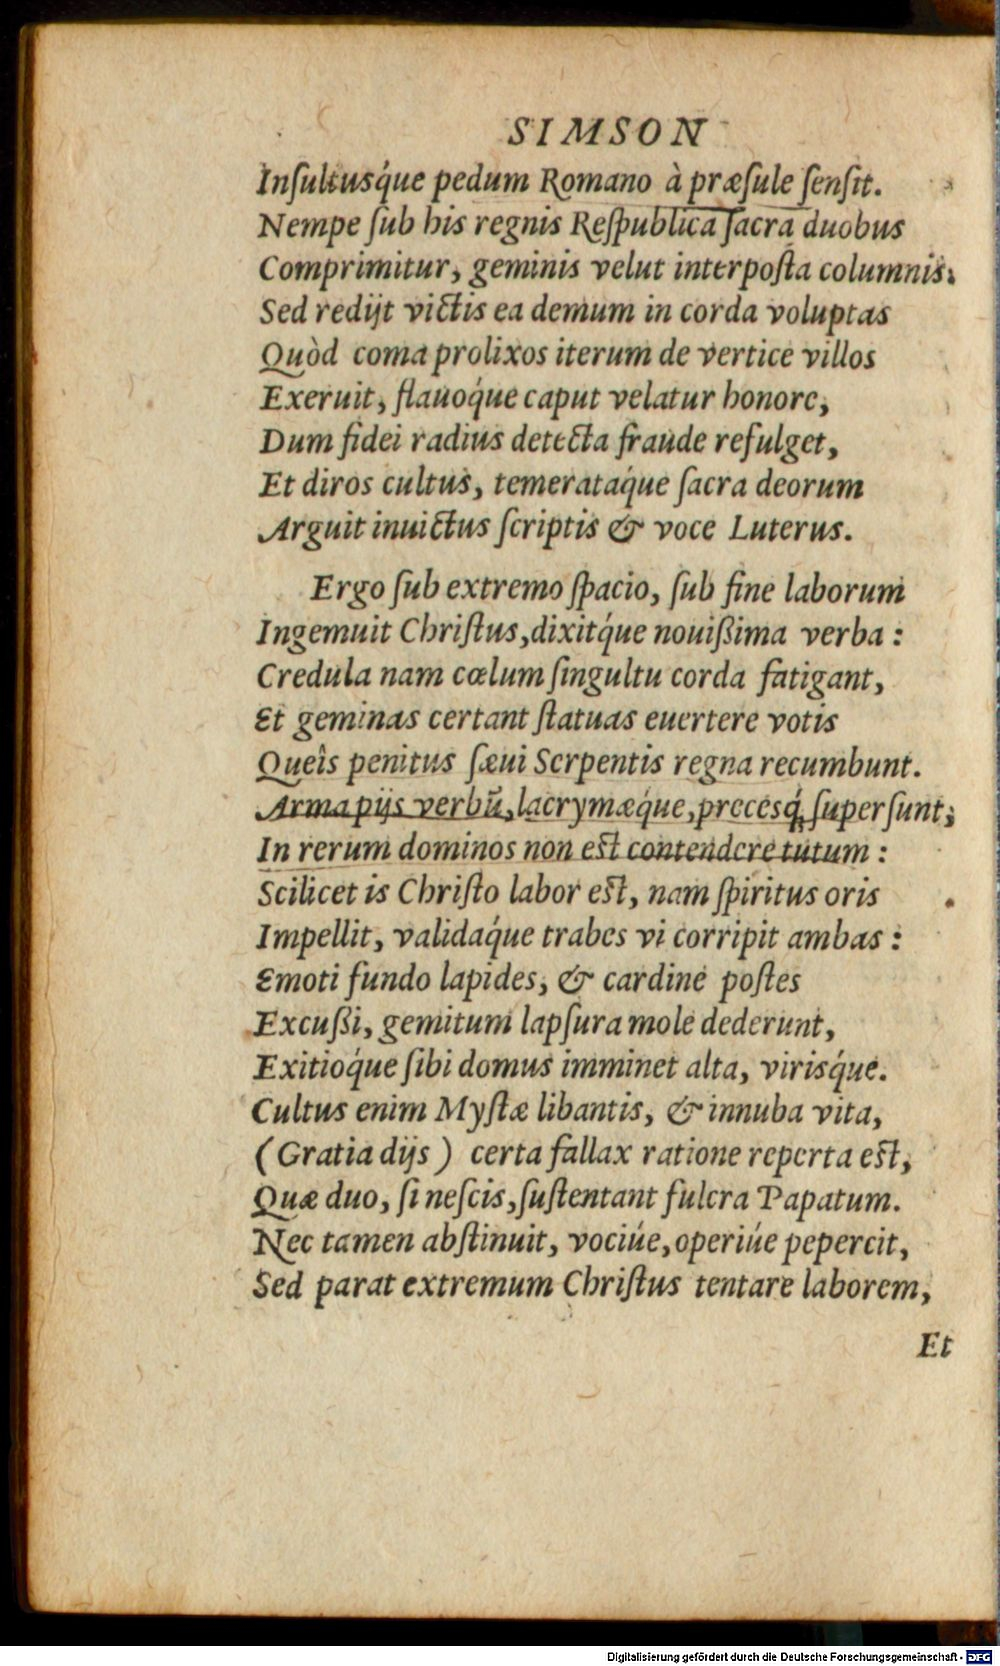 SIMSON
Inſultusq́ue pedum Romano à præſule ſenſit.
Nempe ſub his regnis Reſpublica ſacra duobus
Comprimitur, geminis velut interpoſta columnis.
Sed redijt victis ea demum in corda voluptas
Quòd coma prolixos iterum de vertice villos
Exeruit, flauoq́ue caput velatur honore,
Dum fidei radius detecta fraude refulget,
Et diros cultus, temerataq́ue ſacra deorum
Arguit inuictus ſcriptis & voce Luterus.
Ergo ſub extremo ſpacio, ſub fine laborum
Ingemuit Chriſtus, dixitq́ue nouißima verba :
Credula nam cœlum ſingultu corda fatigant,
Et geminas certant ſtatuas euertere votis
Queîs penitus ſæui Serpentis regna recumbunt.
Arma pijs verbū, lacrymæq́ue, precesq́; ſuperſunt;
In rerum dominos non est contendere tutum :
Scilicet is Chriſto labor est, nam ſpiritus oris
Impellit, validaq́ue trabes vi corripit ambas :
Emoti fundo lapides, & cardine poſtes
Excußi, gemitum lapſura mole dederunt,
Exitioq́ue ſibi domus imminet alta, virisq́ue.
Cultus enim Myſtæ libantis, & innuba vita,
(Gratia dijs) certa fallax ratione reperta est,
Quæ duo, ſi neſcis, ſuſtentant fulcra Papatum.
Nec tamen abſtinuit, vociúe, operiúe pepercit,
Sed parat extremum Chriſtus tentare laborem,
Et
Digitalisierung gefördert durch die Deutsche Forschungsgemeinschaft - DFG